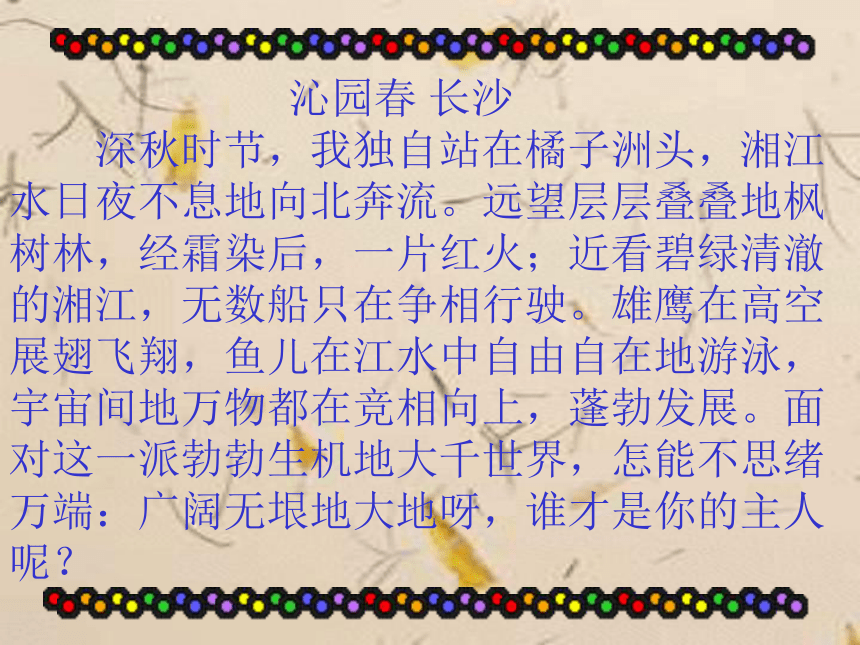 沁园春 长沙
深秋时节，我独自站在橘子洲头，湘江
水日夜不息地向北奔流。远望层层叠叠地枫
树林，经霜染后，一片红火；近看碧绿清澈
的湘江，无数船只在争相行驶。雄鹰在高空
展翅飞翔，鱼儿在江水中自由自在地游泳，
宇宙间地万物都在竞相向上，蓬勃发展。面
对这一派勃勃生机地大千世界，怎能不思绪
万端：广阔无垠地大地呀，谁才是你的主人
呢？